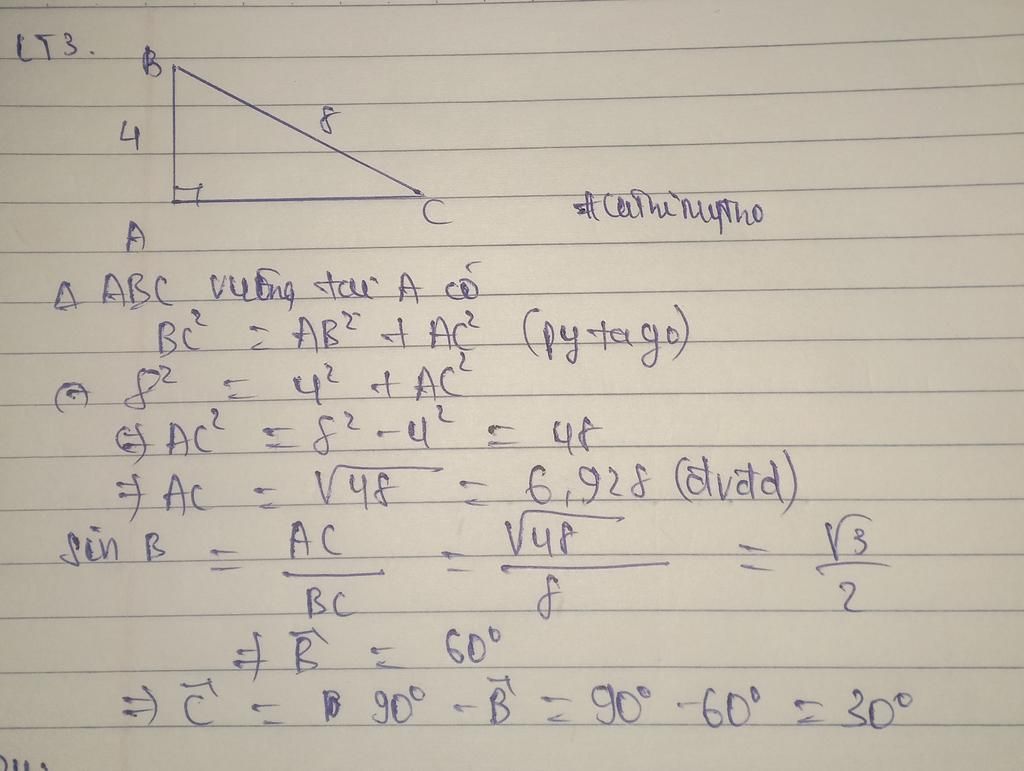 LT3.
B
4
8
A
C
#Cauthimytho
Δ ABC vuông tại A có
BC² = AB² + AC² (pytago)
⇔ 8² = 4² + AC²
⇔ AC² = 8² - 4² = 48
⇒ AC = √48 = 6,928 (đvđd)
sin B = AC/BC = √48/8 = √3/2
⇒ B̂ = 60°
⇒ Ĉ = 90° - B̂ = 90° - 60° = 30°